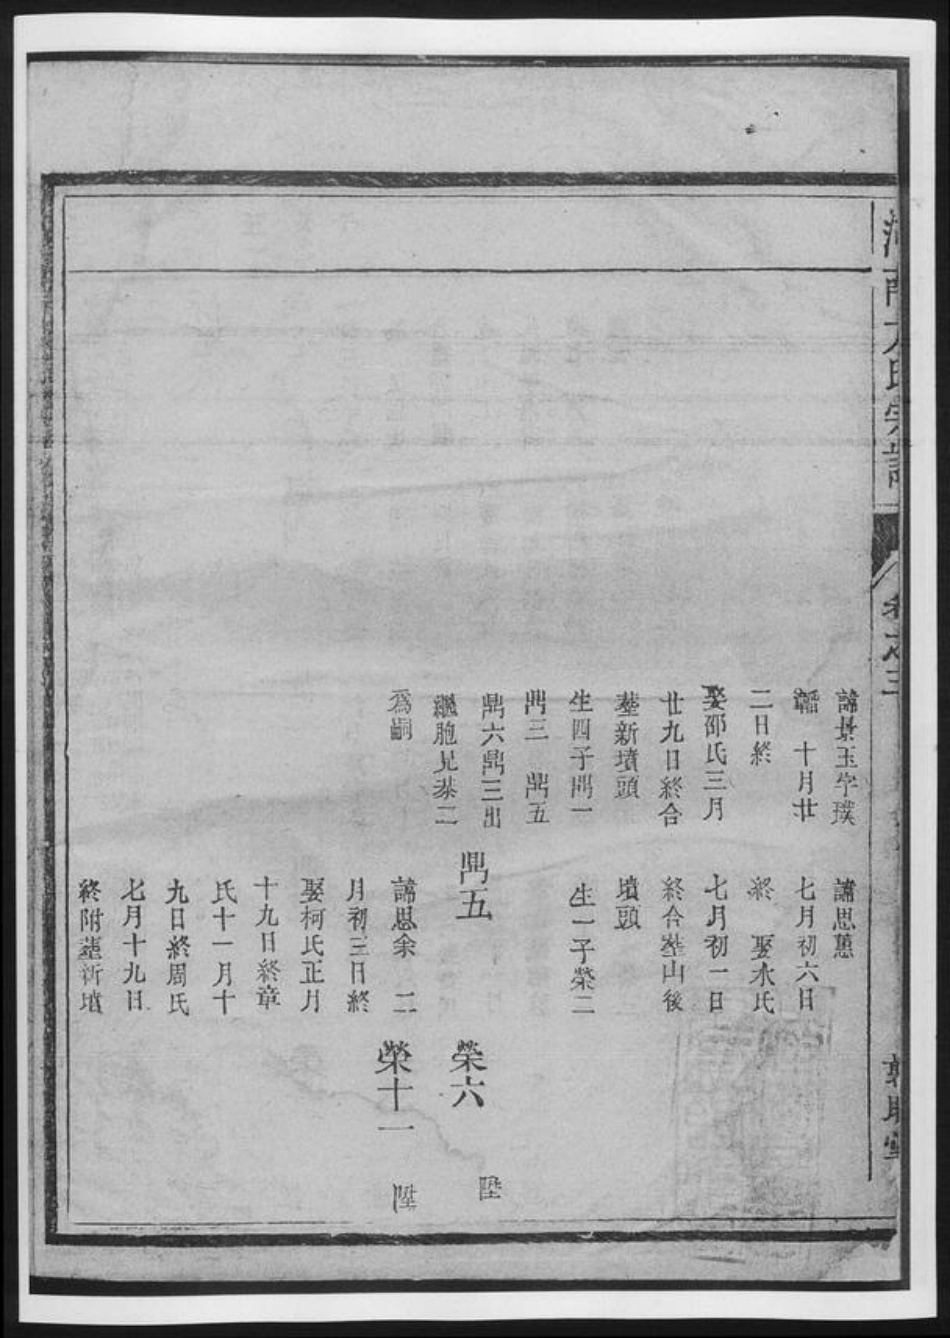 南方氏宗譜
卷之三
諱景玉字璞
十月廿
二日終
娶邵氏三月
廿九日終合
塟新墳頭
生四子鼎一
鼎三 鼎五
鼎六鼎三出
繼胞兄恭二
為嗣
諱思蕙
七月初六日
終 娶水氏
七月初一日
終合塟山後
墳頭
生一子榮二
鼎五
諱思余 二
月初三日終
娶柯氏正月
十九日終章
氏十一月十
九日終周氏
七月十九日
終附塟新墳
榮六 陞
榮十一 陞